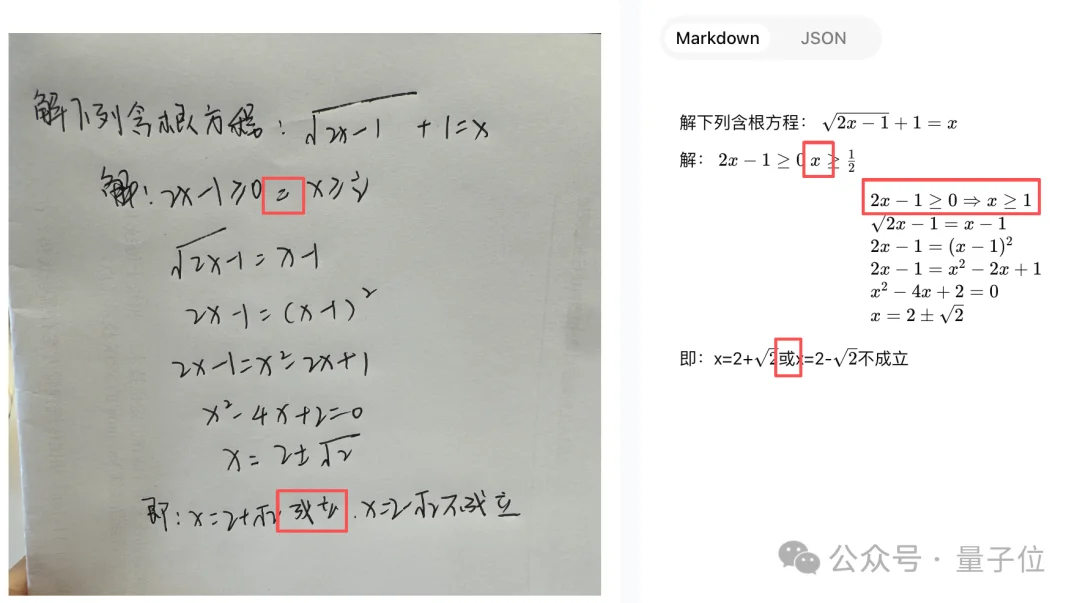 解下列含根方程：√2x-1 + 1=x
解：2x-1≥0 = x≥½
√2x-1 = x-1
2x-1=(x-1)²
2x-1=x²-2x+1
x²-4x+2=0
x=2±√2
即：x=2+√2 成立．x=2-√2不成立
Markdown JSON
解下列含根方程：√2x-1+1=x
解：2x-1≥0 x≥½
2x-1≥0⇒x≥1
√2x-1=x-1
2x-1=(x-1)²
2x-1=x²-2x+1
x²-4x+2=0
x=2±√2
即：x=2+√2或x=2-√2不成立
公众号·量子位